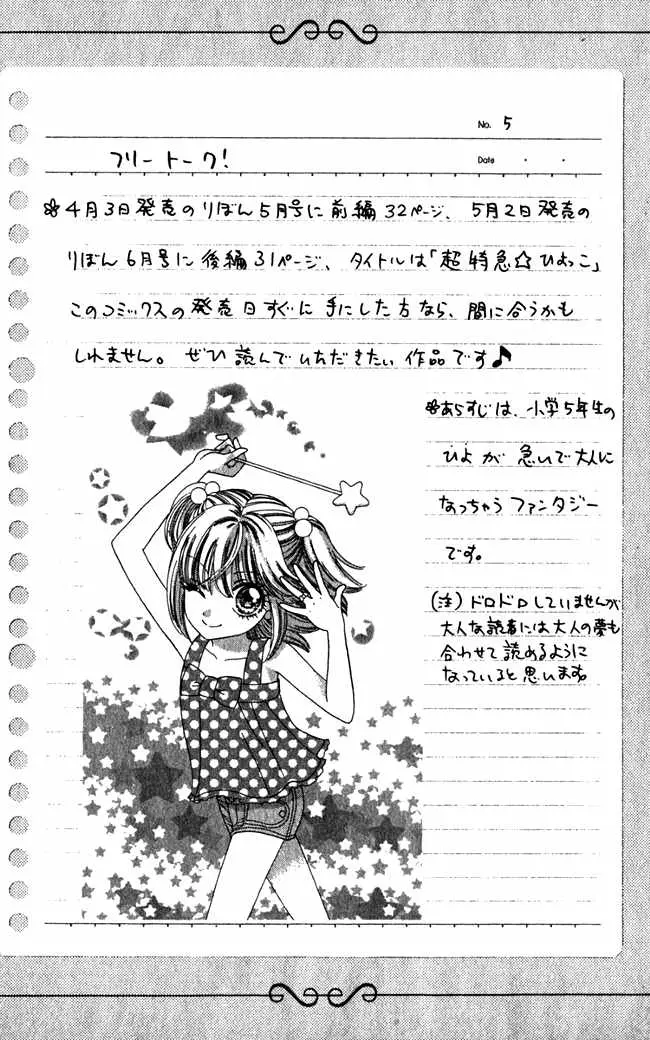 No. 5
フリートーク!
Date ・ ・
❀4月3日発売のりぼん5月号に前編32ページ、5月2日発売の
りぼん6月号に後編31ページ、タイトルは「超特急☆ひよっこ」
このコミックスの発売日すぐに手にした方なら、間に合うかも
しれません。ぜひ読んでいただきたい作品です♪
❀あらすじは、小学5年生の
ひよが急いで大人に
なっちゃうファンタジー
です。
(注)ドロドロしていませんが
大人な読者には大人の夢も
合わせて読めるように
なっていると思います。